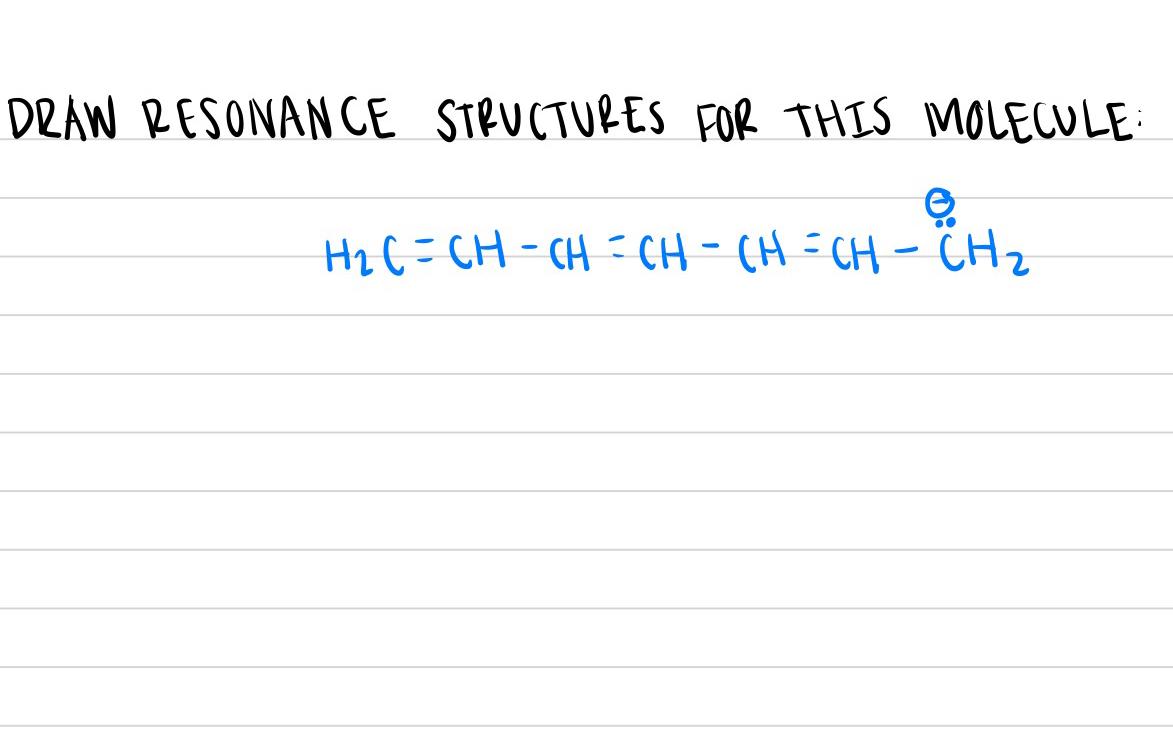 DRAW RESONANCE STRUCTURES FOR THIS MOLECULE:
⊖
H₂C=CH-CH=CH-CH=CH-C̈H₂